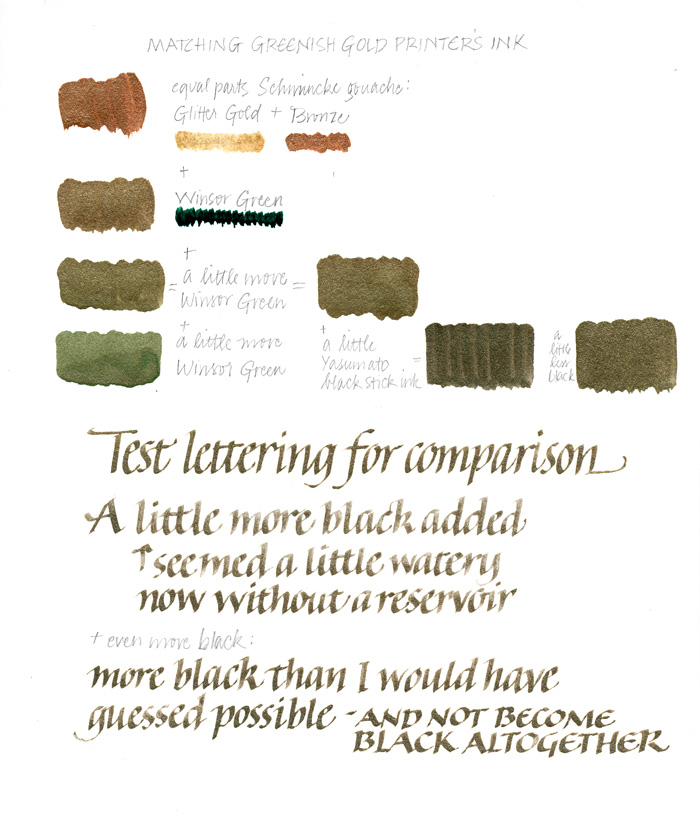 MATCHING GREENISH GOLD PRINTER'S INK
equal parts Schmincke gouache:
Glitter Gold + Bronze
+
Winsor Green
+
= a little more =
Winsor Green
+
a little more
Winsor Green
+
a little
Yasumato
black stick ink =
a
little
less
black
Test lettering for comparison
A little more black added
↑seemed a little watery
now without a reservoir
+ even more black:
more black than I would have
guessed possible - AND NOT BECOME
BLACK ALTOGETHER